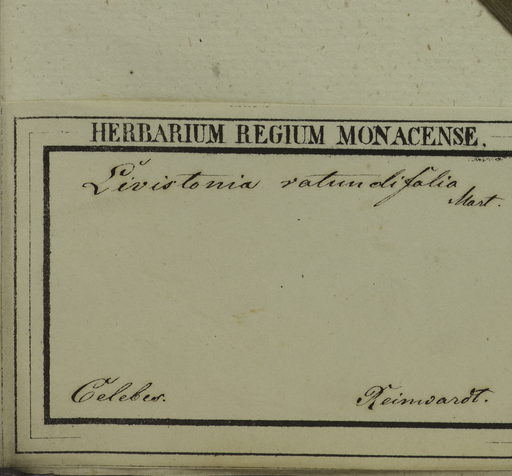 HERBARIUM REGIUM MONACENSE.
Livistonia rotundifolia
Mart.
Celebes.
Reinwardt.